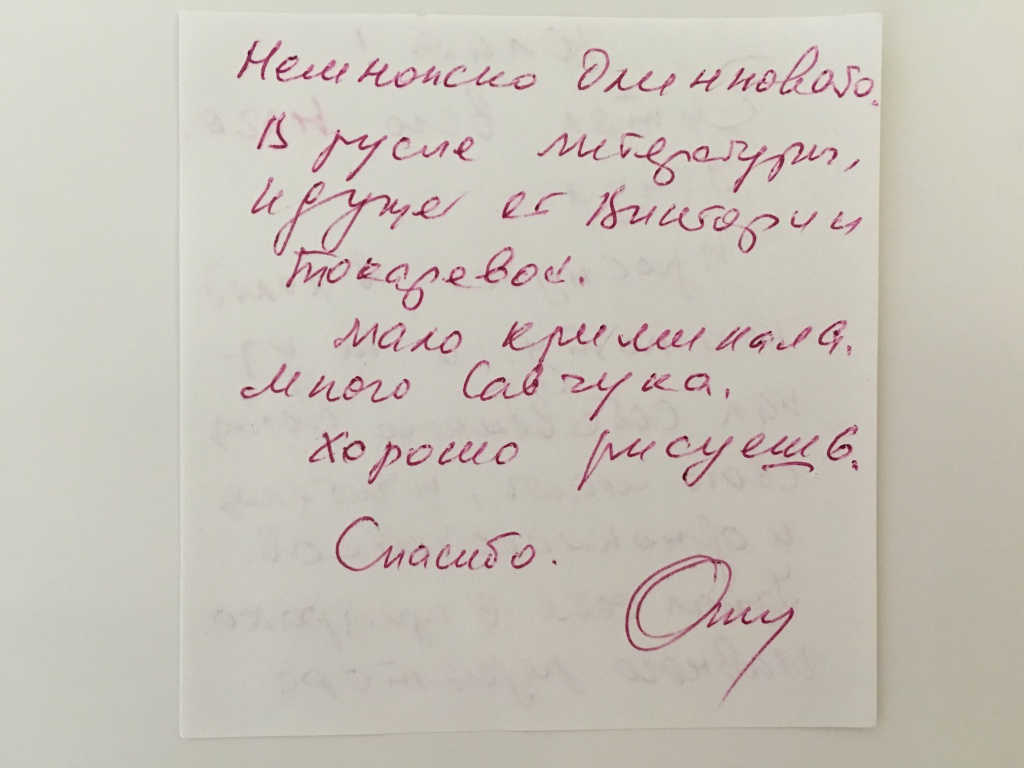 Немножко длинновато.
В русле литературы,
идущей от Виктории
Токаревой.
Мало криминала.
Много Савчука.
Хорошо рисуешь.
Спасибо.